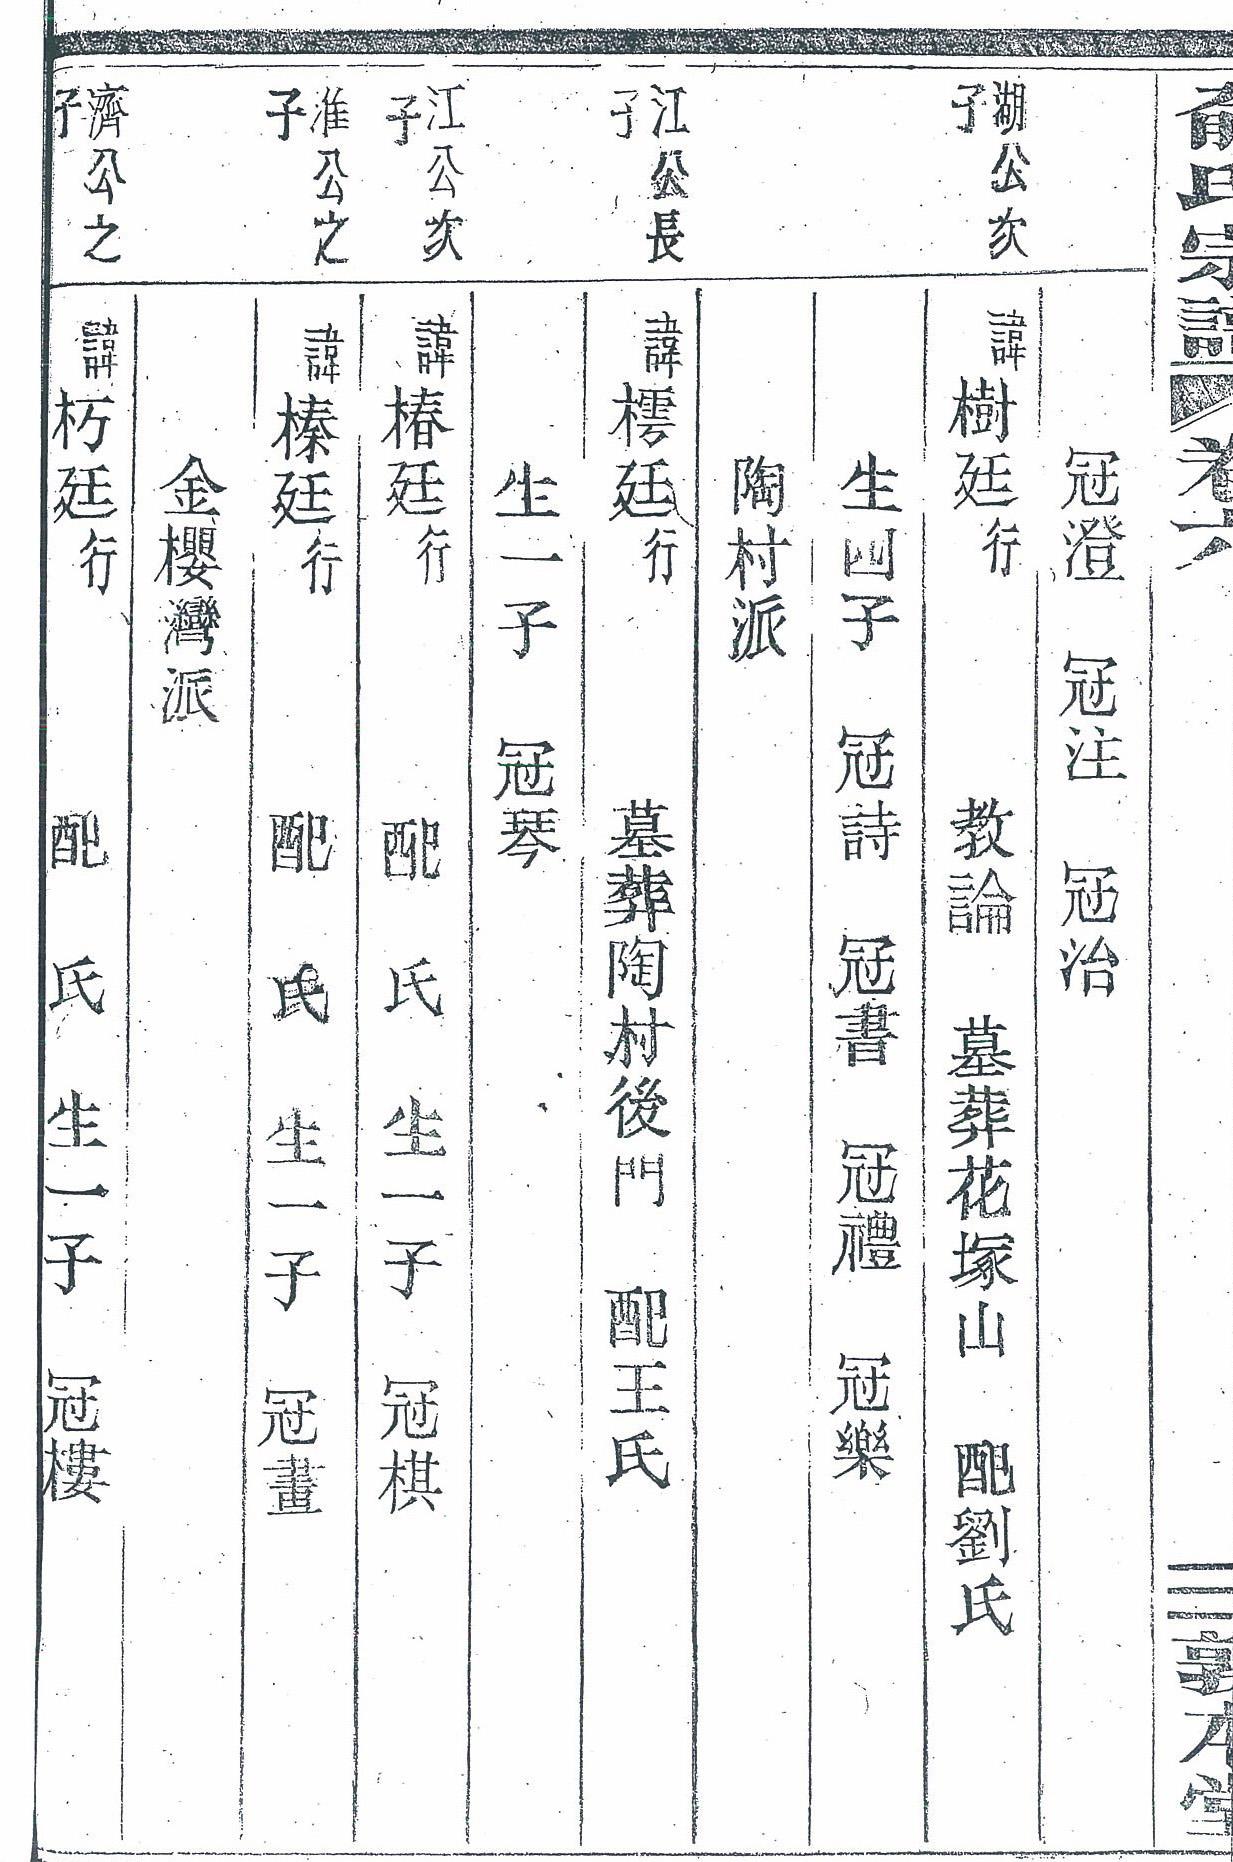 氏宗譜 卷六 三 敦本堂
冠澄 冠注 冠治
湖公次子
諱樹廷行 教論 墓葬花塚山 配劉氏
生四子 冠詩 冠書 冠禮 冠樂
陶村派
江公長子
諱樗廷行 墓葬陶村後門 配王氏
生一子 冠琴
江公次子
諱椿廷行 配 氏 生一子 冠棋
淮公之子
諱榛廷行 配 氏 生一子 冠畫
金櫻灣派
濟公之子
諱杇廷行 配 氏 生一子 冠樓